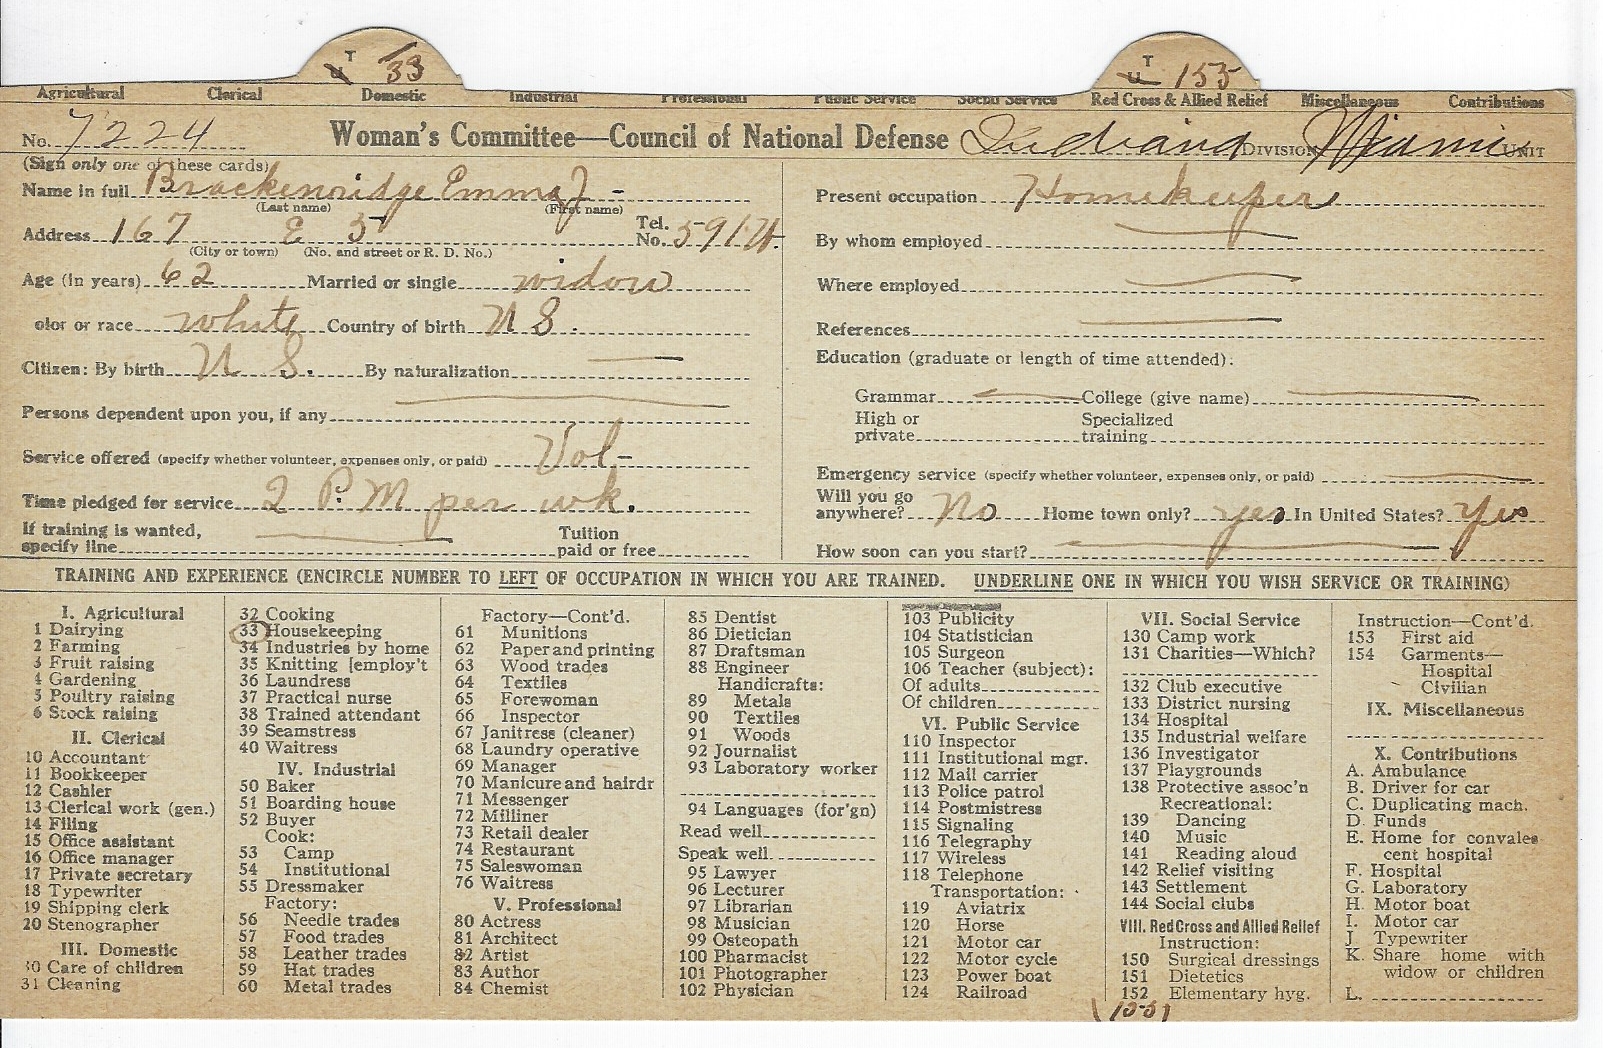 T
U 33
T
U 155
Agricultural Clerical Domestic Industrial Professional Public Service Social Service Red Cross & Allied Relief Miscellaneous Contributions
No. 7224 Woman's Committee—Council of National Defense Indiana DIVISION Miami UNIT
(Sign only one of these cards)
Name in full Brackenridge Emma J -
(Last name) (First name)
Address 167 E 5 Tel. No. 591
(City or town) (No. and street or R. D. No.)
Age (in years) 62 Married or single widow
olor or race white Country of birth U S.
Citizen: By birth U S. By naturalization
Persons dependent upon you, if any
Service offered (specify whether volunteer, expenses only, or paid) Vol-
Time pledged for service 2 P.M per wk.
If training is wanted, specify line Tuition paid or free
Present occupation Homekeeper
By whom employed
Where employed
References
Education (graduate or length of time attended):
Grammar College (give name)
High or private Specialized training
Emergency service (specify whether volunteer, expenses only, or paid)
Will you go anywhere? No Home town only? yes In United States? Yes
How soon can you start?
TRAINING AND EXPERIENCE (ENCIRCLE NUMBER TO LEFT OF OCCUPATION IN WHICH YOU ARE TRAINED. UNDERLINE ONE IN WHICH YOU WISH SERVICE OR TRAINING)
I. Agricultural
1 Dairying
2 Farming
3 Fruit raising
4 Gardening
5 Poultry raising
6 Stock raising
II. Clerical
10 Accountant
11 Bookkeeper
12 Cashier
13 Clerical work (gen.)
14 Filing
15 Office assistant
16 Office manager
17 Private secretary
18 Typewriter
19 Shipping clerk
20 Stenographer
III. Domestic
30 Care of children
31 Cleaning
32 Cooking
33 Housekeeping
34 Industries by home
35 Knitting [employ't
36 Laundress
37 Practical nurse
38 Trained attendant
39 Seamstress
40 Waitress
IV. Industrial
50 Baker
51 Boarding house
52 Buyer
Cook:
53 Camp
54 Institutional
55 Dressmaker
Factory:
56 Needle trades
57 Food trades
58 Leather trades
59 Hat trades
60 Metal trades
Factory—Cont'd.
61 Munitions
62 Paper and printing
63 Wood trades
64 Textiles
65 Forewoman
66 Inspector
67 Janitress (cleaner)
68 Laundry operative
69 Manager
70 Manicure and hairdr
71 Messenger
72 Milliner
73 Retail dealer
74 Restaurant
75 Saleswoman
76 Waitress
V. Professional
80 Actress
81 Architect
82 Artist
83 Author
84 Chemist
85 Dentist
86 Dietician
87 Draftsman
88 Engineer
Handicrafts:
89 Metals
90 Textiles
91 Woods
92 Journalist
93 Laboratory worker
94 Languages (for'gn)
Read well
Speak well
95 Lawyer
96 Lecturer
97 Librarian
98 Musician
99 Osteopath
100 Pharmacist
101 Photographer
102 Physician
103 Publicity
104 Statistician
105 Surgeon
106 Teacher (subject):
Of adults
Of children
VI. Public Service
110 Inspector
111 Institutional mgr.
112 Mail carrier
113 Police patrol
114 Postmistress
115 Signaling
116 Telegraphy
117 Wireless
118 Telephone
Transportation:
119 Aviatrix
120 Horse
121 Motor car
122 Motor cycle
123 Power boat
124 Railroad
VII. Social Service
130 Camp work
131 Charities—Which?
132 Club executive
133 District nursing
134 Hospital
135 Industrial welfare
136 Investigator
137 Playgrounds
138 Protective assoc'n
Recreational:
139 Dancing
140 Music
141 Reading aloud
142 Relief visiting
143 Settlement
144 Social clubs
VIII. Red Cross and Allied Relief
Instruction:
150 Surgical dressings
151 Dietetics
152 Elementary hyg.
(155)
Instruction—Cont'd.
153 First aid
154 Garments—
Hospital
Civilian
IX. Miscellaneous
X. Contributions
A. Ambulance
B. Driver for car
C. Duplicating mach.
D. Funds
E. Home for convales
cent hospital
F. Hospital
G. Laboratory
H. Motor boat
I. Motor car
J Typewriter
K. Share home with
widow or children
L.